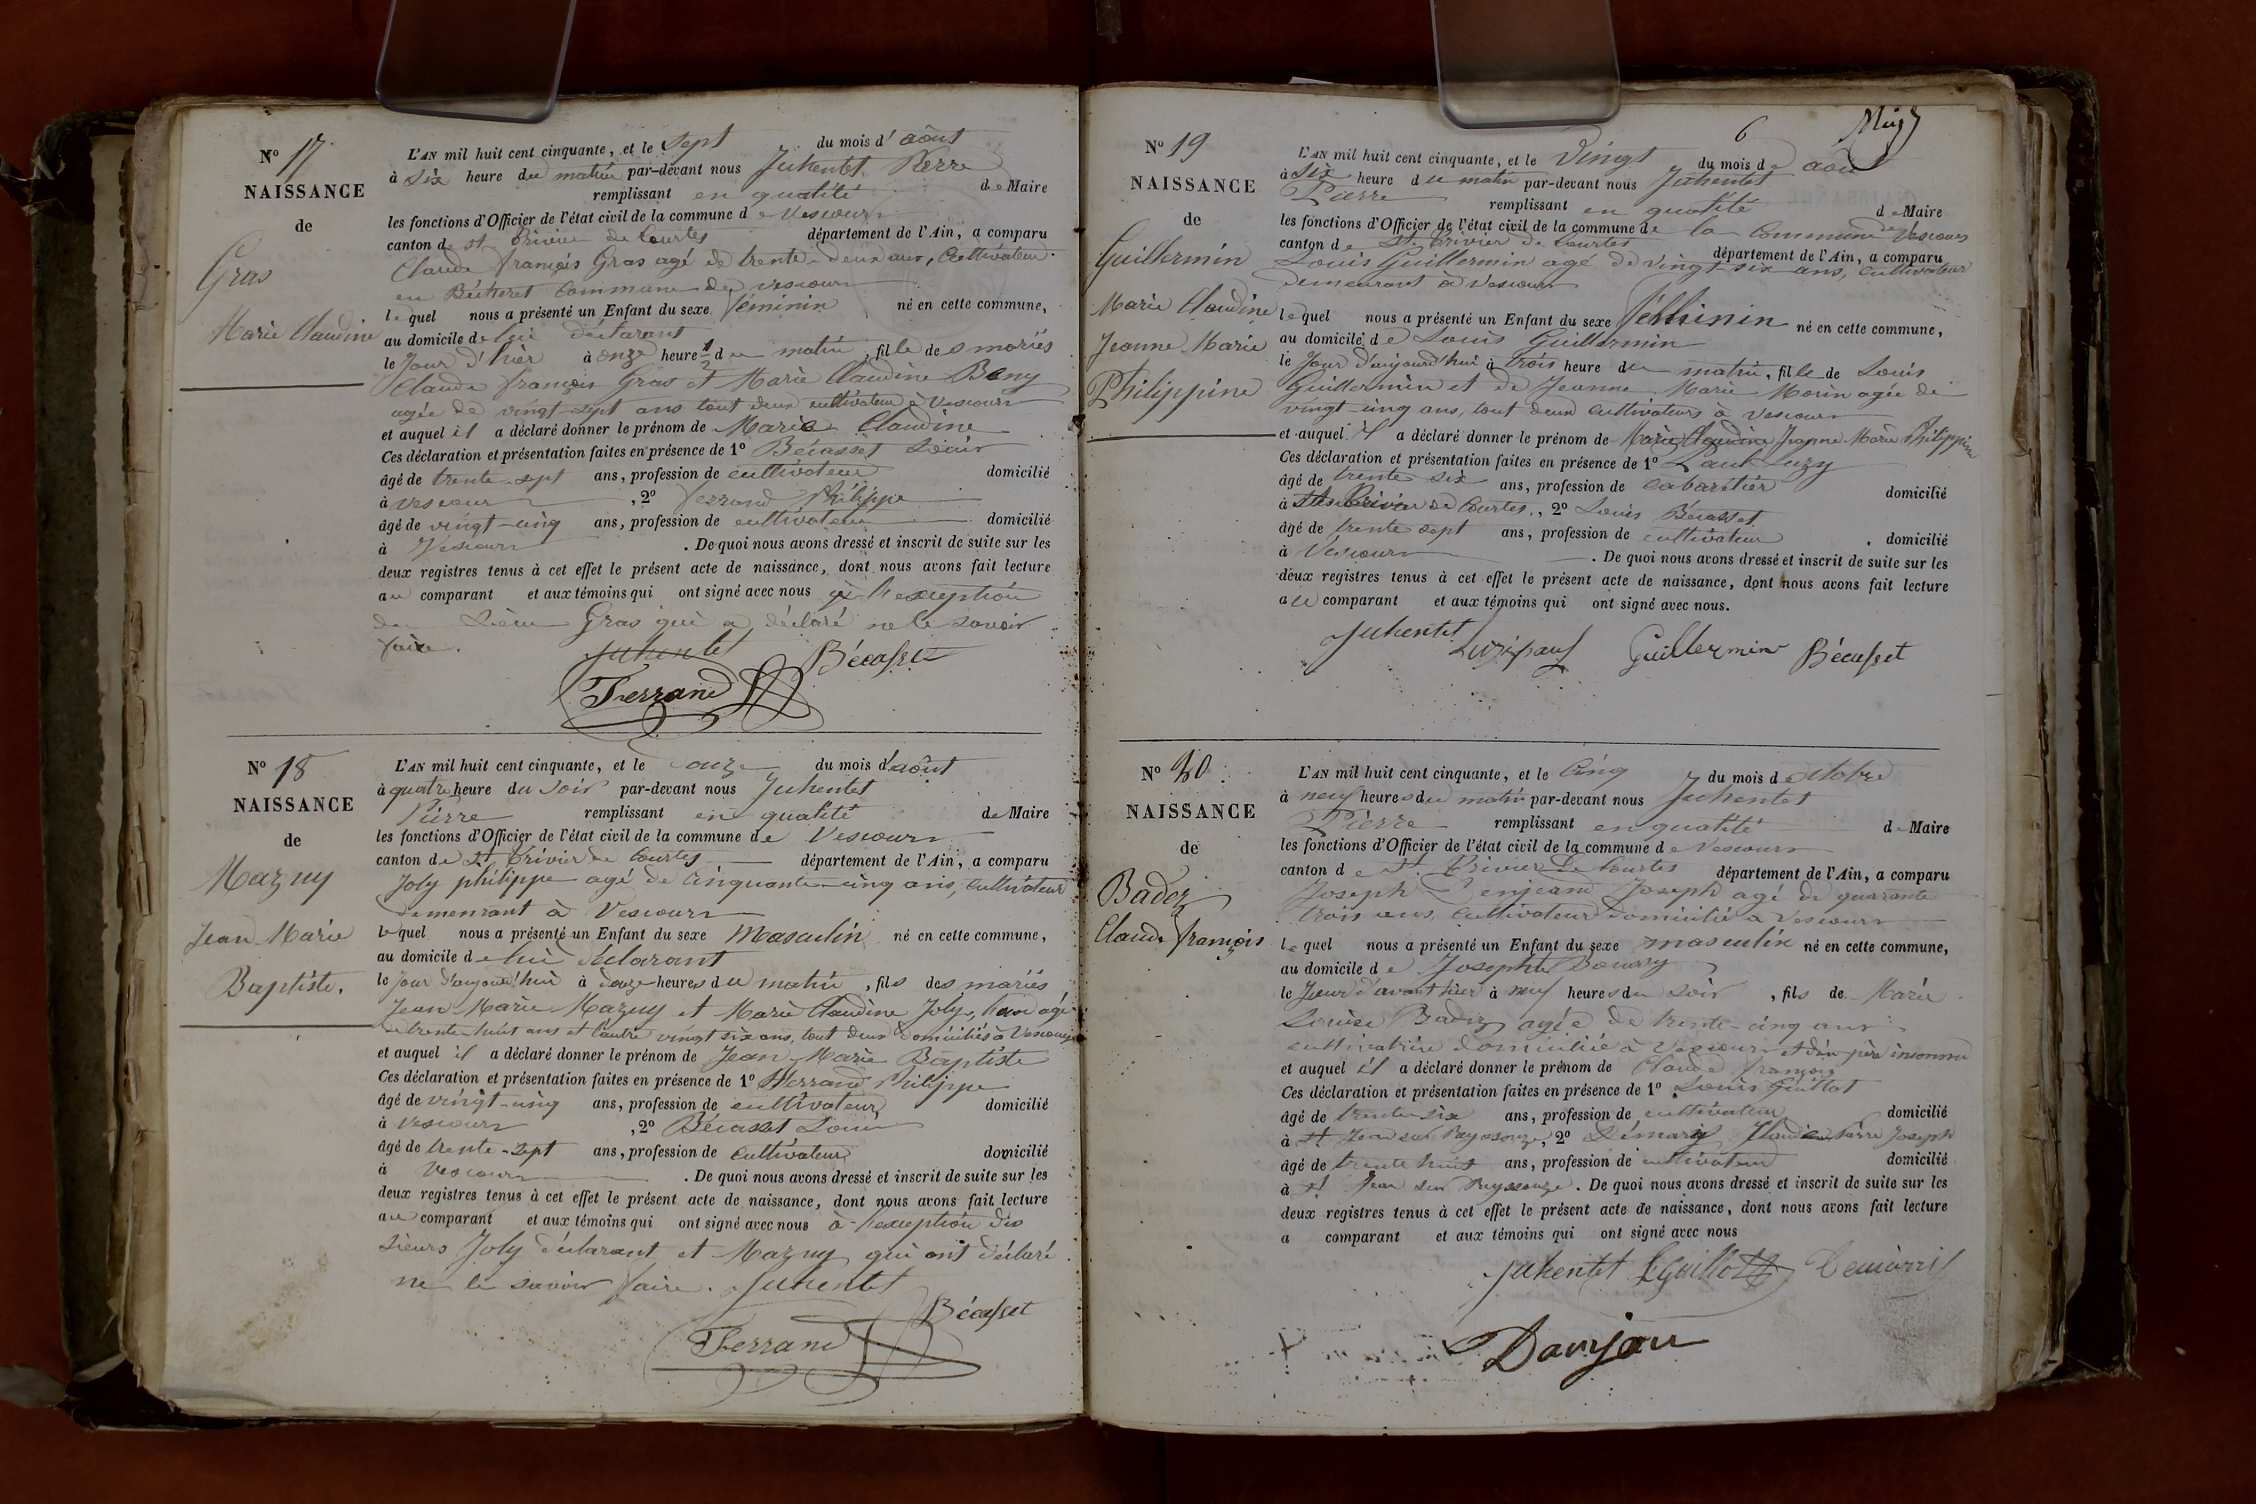 N° 17
NAISSANCE
de
Gras
Marie Claudine
L'AN mil huit cent cinquante, et le sept du mois d'août
à six heure du matin par-devant nous Juhentet Pierre
remplissant en qualité de Maire
les fonctions d'Officier de l'état civil de la commune de Vescours
canton de st Trivier de Courtes département de l'Ain, a comparu
Claude françois Gras agé de trente-deux ans, Cultivateur
en Bécheret Commune de vescours
lequel nous a présenté un Enfant du sexe féminin né en cette commune,
au domicile de lui déclarant
le Jour d'hier à onze heure ½ du matin, fille des mariés
Claude françois Gras et Marie Claudine Beny
agée de vingt-sept ans tout deux cultivateur à Vescours
et auquel il a déclaré donner le prénom de Marie Claudine
Ces déclaration et présentation faites en présence de 1° Bécasset Louis
âgé de trente-sept ans, profession de cultivateur domicilié
à vescours, 2° ferrand Philippe
âgé de vingt-cinq ans, profession de cultivateur domicilié
à Vescours. De quoi nous avons dressé et inscrit de suite sur les
deux registres tenus à cet effet le présent acte de naissance, dont nous avons fait lecture
au comparant et aux témoins qui ont signé avec nous à l'exception
du Sieur Gras qui a déclaré ne le savoir
faire.
Juhentet Bécasset
Ferrand
N° 18
NAISSANCE
de
Mazuy
Jean-Marie
Baptiste.
L'AN mil huit cent cinquante, et le onze du mois d'août
à quatre heure du soir par-devant nous Juhentet
Pierre remplissant en qualité de Maire
les fonctions d'Officier de l'état civil de la commune de Vescours
canton de st Trivier de Courtes département de l'Ain, a comparu
Joly philippe agé de Cinquante-cinq ans, Cultivateur
demeurant à Vescours
lequel nous a présenté un Enfant du sexe Masculin né en cette commune,
au domicile de lui déclarant
le jour d'aujourd'hui à douze heures du matin, fils des mariés
Jean Marie Mazuy et Marie Claudine Joly, l'un agé
de trente-huit ans et l'autre vingt six ans, tout deux domiciliés à Vescours
et auquel il a déclaré donner le prénom de Jean Marie Baptiste
Ces déclaration et présentation faites en présence de 1° ferrand Philippe
âgé de vingt-cinq ans, profession de cultivateur domicilié
à vescours, 2° Bécasset Louis
âgé de trente-sept ans, profession de Cultivateur domicilié
à Vescours. De quoi nous avons dressé et inscrit de suite sur les
deux registres tenus à cet effet le présent acte de naissance, dont nous avons fait lecture
au comparant et aux témoins qui ont signé avec nous à l'exception des
sieurs Joly déclarant et Mazuy qui ont déclaré
ne le savoir faire. Juhentet
Bécasset
Ferrand
6
N° 19
NAISSANCE
de
Guillermin
Marie Claudine
Jeanne Marie
Philippine
L'AN mil huit cent cinquante, et le Vingt du mois de août
à six heure du matin par-devant nous Juhentet
Pierre remplissant en qualité de Maire
les fonctions d'Officier de l'état civil de la commune de la Commune de Vescours
canton de St Trivier de Courtes département de l'Ain, a comparu
Louis Guillermin agé de vingt six ans, cultivateur
demeurant à Vescours
lequel nous a présenté un Enfant du sexe féminin né en cette commune,
au domicile de Louis Guillermin
le Jour d'aujourd'hui à trois heure du matin, fille de Louis
Guillermin et de Jeanne Marie Morin agée de
vingt-cinq ans, tout deux cultivateurs à vescours
et auquel il a déclaré donner le prénom de Marie Claudine Jeanne Marie Philippine
Ces déclaration et présentation faites en présence de 1° Paul Luzy
âgé de trente six ans, profession de cabaretier domicilié
à St Trivier de Courtes, 2° Louis Bécasset
âgé de trente sept ans, profession de cultivateur domicilié
à Vescours. De quoi nous avons dressé et inscrit de suite sur les
deux registres tenus à cet effet le présent acte de naissance, dont nous avons fait lecture
au comparant et aux témoins qui ont signé avec nous.
Juhentet Luzy paul Guillermin Bécasset
N° 20
NAISSANCE
de
Badez
Claude françois
L'AN mil huit cent cinquante, et le Cinq du mois d'octobre
à neuf heures du matin par-devant nous Juhentet
Pierre remplissant en qualité de Maire
les fonctions d'Officier de l'état civil de la commune de Vescours
canton de St. Trivier de Courtes département de l'Ain, a comparu
Joseph Joseph agé de quarante
trois ans, Cultivateur domicilié à Vescours
lequel nous a présenté un Enfant du sexe masculin né en cette commune,
au domicile de Josephte
le Jour d'avant hier à neuf heures du soir, fils de Marie
Louise Badez agée de trente-cinq ans
cultivatrice domiciliée à Vescours et d'un père inconnu
et auquel il a déclaré donner le prénom de Claude françois
Ces déclaration et présentation faites en présence de 1° Louis Guillot
âgé de trente-six ans, profession de cultivateur domicilié
à St Jean sur Reyssouze, 2° Claude Pierre Joseph
âgé de trente huit ans, profession de cultivateur domicilié
à St Jean sur Reyssouze. De quoi nous avons dressé et inscrit de suite sur les
deux registres tenus à cet effet le présent acte de naissance, dont nous avons fait lecture
a comparant et aux témoins qui ont signé avec nous
Juhentet LGuillot
Danjan